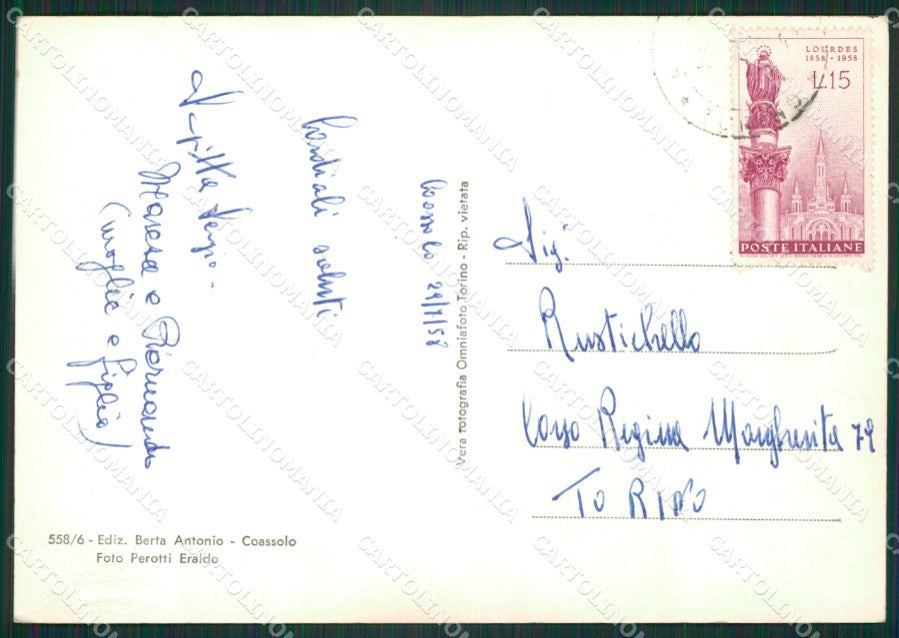 Coassolo 29/7/58
Cordiali saluti
Sergio -
Maresa e Piernando
(moglie e figlio)
Vera fotografia Omniafoto Torino - Rip. vietata
558/6 - Ediz. Berta Antonio - Coassolo
Foto Perotti Eraldo
LOURDES
1858 - 1958
L.15
POSTE ITALIANE
Sig.
Rustichello
Corso Regina Margherita 79
TORINO
CARTOLINOMANIA